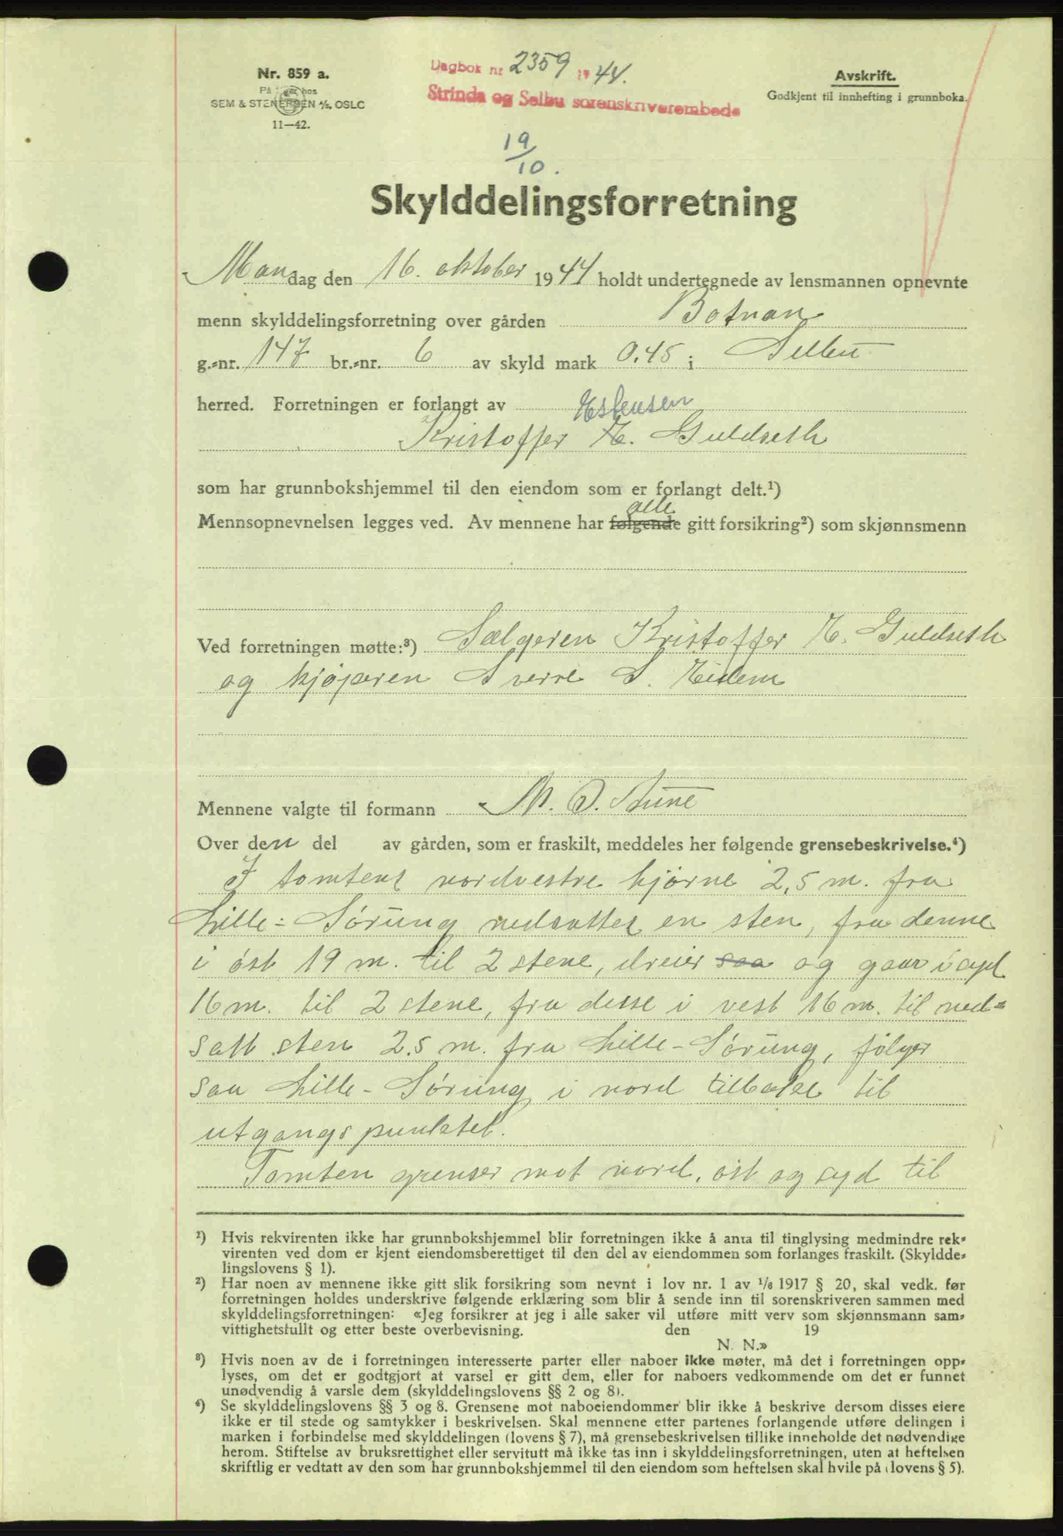 Nr. 859 a.
På lager hos
SEM & STENERSEN A/S, OSLO
11—42.
Dagbok nr 2359 1944.
Strinda og Selbu sorenskriverembede
19/10.
Avskrift.
Godkjent til innhefting i grunnboka.
Skylddelingsforretning
Mandag den 16. oktober 1944 holdt undertegnede av lensmannen opnevnte
menn skylddelingsforretning over gården Botnan
g.-nr. 147 br.-nr. 6 av skyld mark 0.45 i Selbu
herred. Forretningen er forlangt av Estensen
Kristoffer E. Guldseth
som har grunnbokshjemmel til den eiendom som er forlangt delt.¹)
alle
Mennsopnevnelsen legges ved. Av mennene har følgende gitt forsikring²) som skjønnsmenn
Ved forretningen møtte:³) Sælgeren Kristoffer E. Guldseth
og kjøperen Sverre S. Eidem
Mennene valgte til formann M. O. Aune
Over den del av gården, som er fraskilt, meddeles her følgende grensebeskrivelse.⁴)
I tomtens nordvestre hjørne 2,5 m. fra
Lille-Sørung nedsattes en sten, fra denne
i øst 19 m. til 2 stene, dreier saa og gaar i syd
16 m. til 2 stene, fra disse i vest 16 m. til ned-
satt sten 2.5 m. fra Lille-Sørung, følger
saa Lille-Sørung i nord tilbake til
utgangspunktet.
Tomten grenser mot nord, øst og syd til
¹) Hvis rekvirenten ikke har grunnbokshjemmel blir forretningen ikke å anta til tinglysing medmindre rek-
virenten ved dom er kjent eiendomsberettiget til den del av eiendommen som forlanges fraskilt. (Skyldde-
lingslovens § 1).
²) Har noen av mennene ikke gitt slik forsikring som nevnt i lov nr. 1 av 1/6 1917 § 20, skal vedk. før
forretningen holdes underskrive følgende erklæring som blir å sende inn til sorenskriveren sammen med
skylddelingsforretningen: «Jeg forsikrer at jeg i alle saker vil utføre mitt verv som skjønnsmann sam-
vittighetsfullt og etter beste overbevisning. den 19
N. N.»
³) Hvis noen av de i forretningen interesserte parter eller naboer ikke møter, må det i forretningen opp-
lyses, om det er godtgjort at varsel er gitt dem, eller for naboers vedkommende om det er funnet
unødvendig å varsle dem (skylddelingslovens §§ 2 og 8).
⁴) Se skylddelingslovens §§ 3 og 8. Grensene mot naboeiendommer blir ikke å beskrive dersom disses eiere
ikke er til stede og samtykker i beskrivelsen. Skal mennene etter partenes forlangende utføre delingen i
marken i forbindelse med skylddelingen (lovens § 7), må grensebeskrivelsen tillike inneholde det nødvendige
herom. Stiftelse av bruksrettighet eller servitutt må ikke tas inn i skylddelingsforretningen, uten at heftelsen
skriftlig er vedtatt av den som har grunnbokshjemmel til den eiendom som heftelsen skal hvile på (lovens § 5).